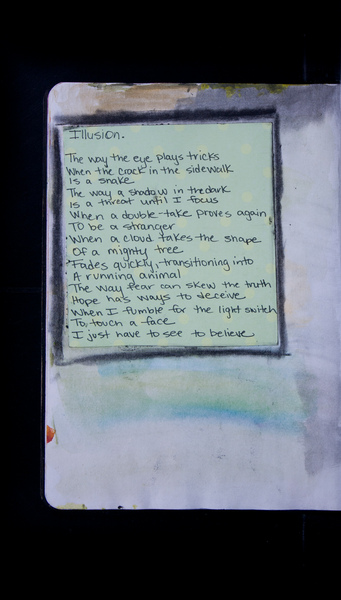 Illusion.
The way the eye plays tricks
When the crack in the sidewalk
Is a snake
The way a shadow in the dark
Is a threat until I focus
When a double-take proves again,
To be a stranger
When a cloud takes the shape
Of a mighty tree
Fades quickly, transitioning into
A running animal
The way fear can skew the truth
Hope has ways to deceive
When I fumble for the light switch
To, touch a face
I just have to see to believe